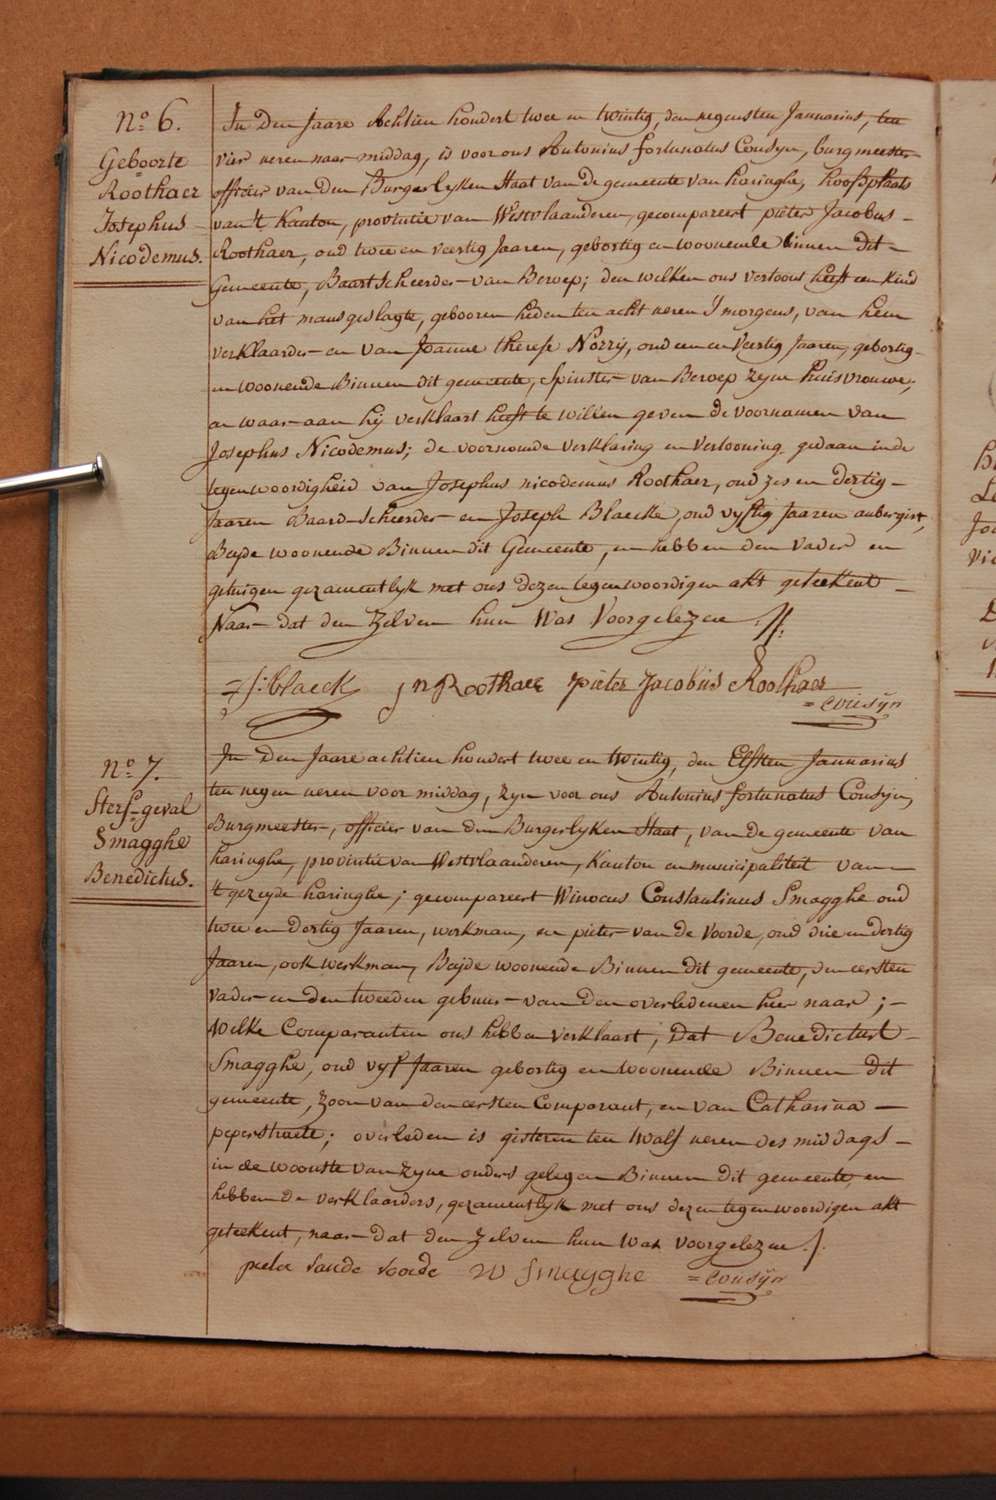 No. 6.
Geboorte
Roothaer
Josephus
Nicodemus.
In den Jaare Achtien hondert twee en twintig, den negensten Januarius, ten
vier ueren naar middag, is voor ons Antonius fortunatus Cousyn, burgmeester
officier van den Burgerlyken Staat van de gemeente van haringhe, hoofdplaats
van 't Kanton, provintie van Westvlaanderen, gecompareert pieter Jacobus
Roothaer, oud twee en veertig Jaaren, gebortig en woonende binnen dit
Gemeente, Baartscheerder van Beroep; den welken ons vertoont heeft een kind
van het mansgeslagte, gebooren heden ten acht ueren S'morgens, van hem
verklaarder en van Joanne therese Nozzÿ, oud een en Veertig Jaaren, gebortig
en woonende Binnen dit gemeente, Spinster van Beroep zyne huisvrouwe;
en waar-aan hij verklaart heeft te willen geven de voornamen van
Josephus Nicodemus; de voornoemde verklaring en vertooning gedaan inde
tegenwoordigheid van Josephus nicodemus Roothaer, oud zes en dertig
Jaaren Baard-Scheerder en Joseph Blaecke, oud vyftig Jaaren aubergist,
Beyde woonende Binnen dit Gemeente, en hebben den vader en
getuigen gezamentlyk met ons dezen tegenwoordigen akt geteekent
Naar dat den zelven hun Was Voorgelezen ./.
f: blaeck J n Roothaer Pieter Jacobus Roothaer
= Cousÿn
No. 7.
Sterf-geval
Smagghe
Benedictus.
In Den Jaare achtien hondert twee en twintig, den Elfsten Januarius
ten negen ueren voor middag, Zyn voor ons Antonius fortunatus Cousyn,
Burgmeester, officier van den Burgerlyken Staat, van de gemeente van
haringhe, provintie van Westvlaanderen, Kanton en municipaliteit van
't gezeyde haringhe; gecompareert Winocus Constantinus Smagghe oud
twee en dertig Jaaren, werkman, en pieter van de Voorde, oud drie en dertig
Jaaren, ook werkman, Beyde woonende Binnen dit gemeente, den eersten
vader en den tweeden gebuur van den overledenen hier naar;
Welke Comparanten ons hebben verklaart, Dat Benedictus
Smagghe, oud vyf Jaaren gebortig en woonende Binnen dit
gemeente, Zoon van den eersten Comparant, en van Catharina
peperstraete; overleden is gisteren ten twalf ueren des middags
in de woonste van zyne ouders gelegen Binnen dit gemeente, en
hebben de verklaarders, gezamentlyk met ons dezen tegenwoordigen akt
geteekent, naar dat den zelven hun was voorgelezen ./.
pieter vande voorde W Smagghe = Cousÿn